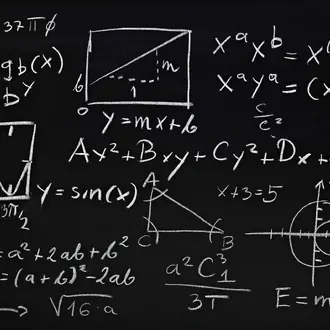 37πφ
gb(x)
b^y
b
0
1
m
y=mx+b
x^a x^b = x^a
x^a y^a = (x
c/c²
Ax²+Bxy+Cy²+Dx+
3π/2
y=sin(x)
A
C
B
x+3=5
=a²+2ab+b²
=(a+b)²-2ab
→ √16·a
a²C₁³
3π
E=m